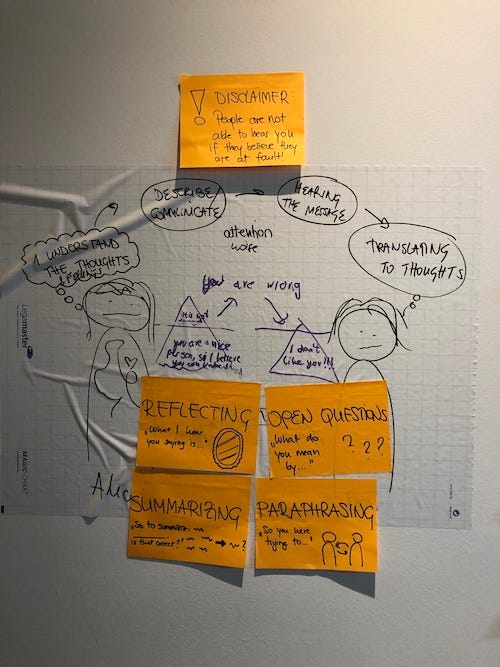 ! DISCLAIMER:
People are not
able to hear you
if they believe they
are at fault!
DESCRIBE/
COMMUNICATE
HEARING
THE MESSAGE
1 UNDERSTAND
THE THOUGHTS
& feelings!
attention
TRANSLATING
TO THOUGHTS
are wrong
It is not
you are a nice
person, so I believe
you can
I don't
like you!!!
legamaster
MAGIC CHART
REFLECTING
"What I hear
you saying is..."
OPEN QUESTIONS
"What do
you mean
by..."
? ? ?
Alice
SUMMARIZING
"So to summarize
is that correct?"
?
PARAPHRASING
"So you were
trying to..."